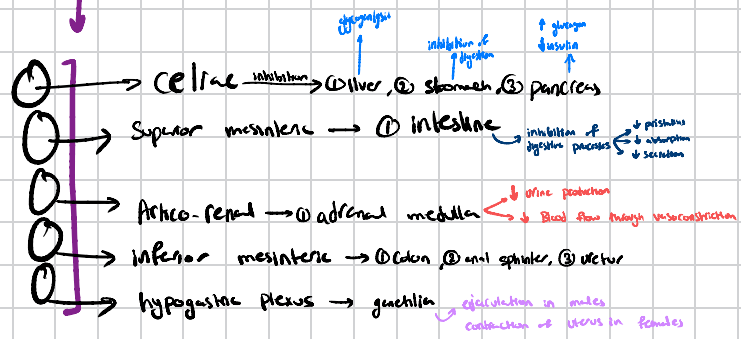 glycogenolysis
↑ glucagon
↓ insulin
inhibition of
digestion
Celiac inhibition → ① liver, ② stomach, ③ pancreas
Superior mesinteric → ① intestine
inhibition of
digestive processes
↓ peristalsis
↓ absorption
↓ secretion
Artico-renal → ① adrenal medulla
↓ urine production
↓ Blood flow through vasoconstriction
inferior mesinteric → ① Colon, ② anal sphinter, ③ uretur
hypogastric plexus → genetilia
ejaculation in males
contraction of uterus in females